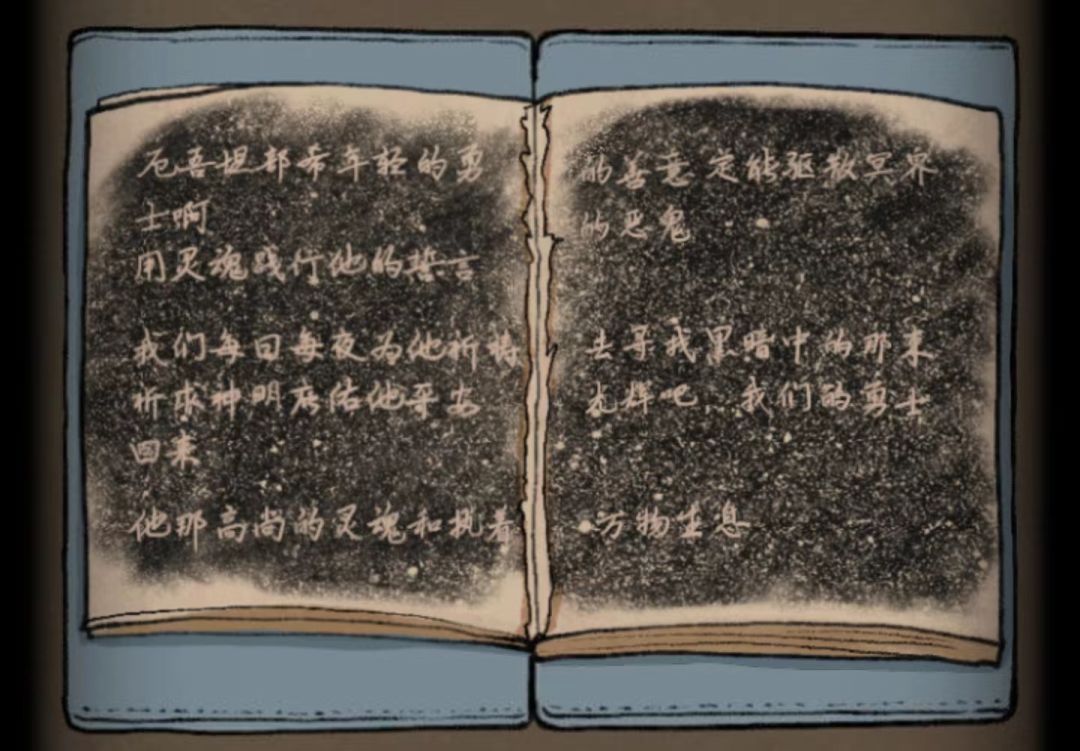 厄吾坦都希年轻的勇
士啊
用灵魂践行他的誓言
我们每日每夜为他祈祷
祈求神明庇佑他平安
回来
他那高尚的灵魂和执着
的善意定能驱散冥界
的恶鬼
去寻找黑暗中的那束
光辉吧...我们的勇士
万物生息